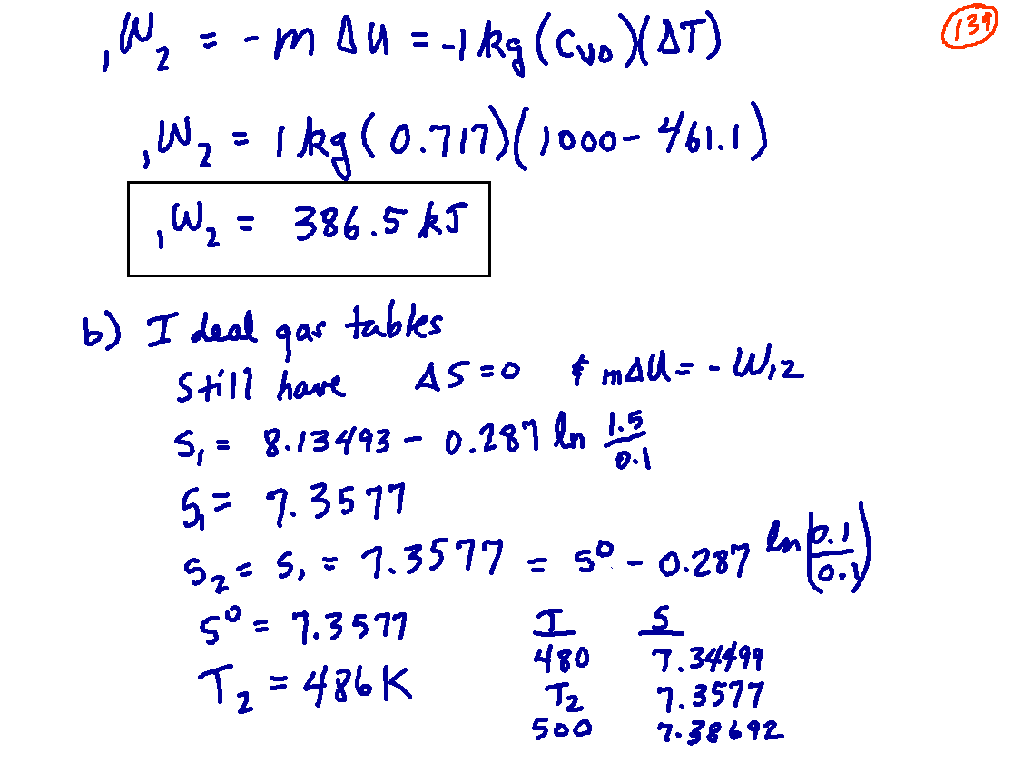 139
₁W₂ = -m ΔU = -1 kg (Cvo)(ΔT)
₁W₂ = 1 kg (0.717)(1000 - 461.1)
₁W₂ = 386.5 kJ
b) Ideal gas tables
Still have ΔS=0 & mΔU = -W₁₂
S₁ = 8.13493 - 0.287 ln 1.5/0.1
S₁ = 7.3577
S₂ = S₁ = 7.3577 = S⁰ - 0.287 ln(0.1/0.1)
S⁰ = 7.3577
T₂ = 486K
T S
480 7.34499
T₂ 7.3577
500 7.38692